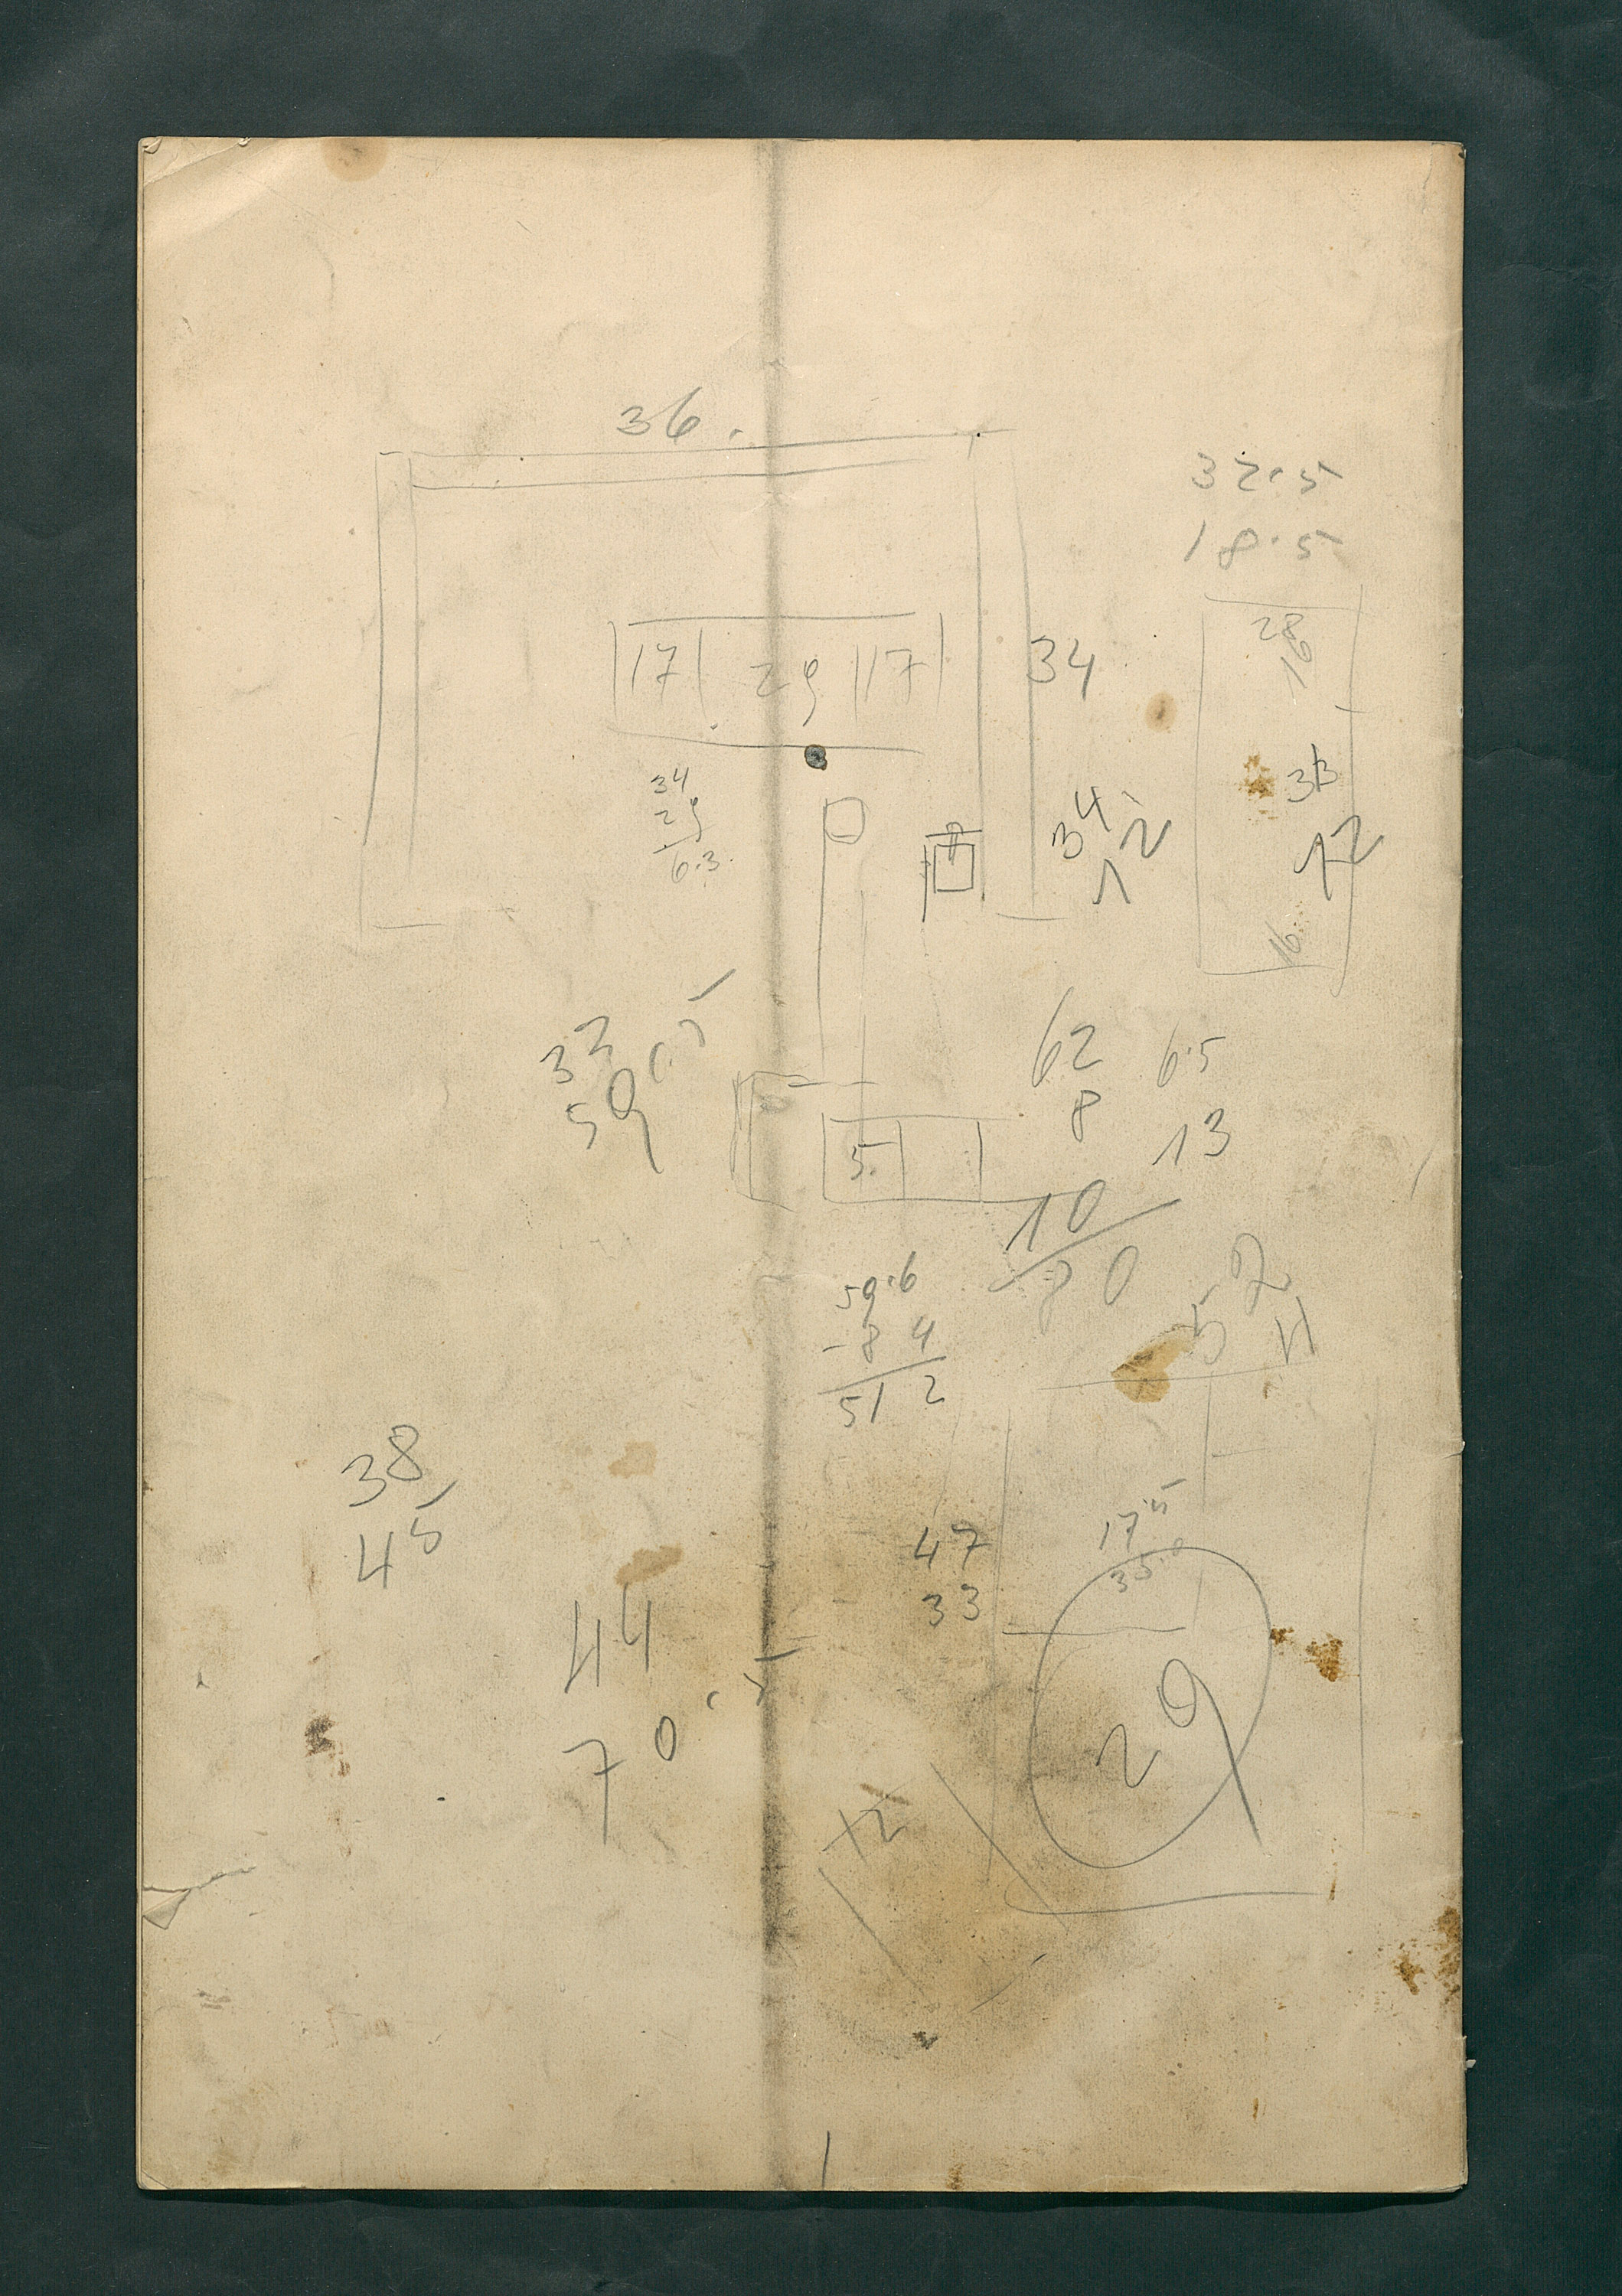 36.
32.5
18.5
28
16
17 29 17
34
34
29
6.3.
33
34 2
1
12
16
62
8
10
80
6.5
13
32
59.5
5
59.6
-8 4
51 2
52
38
45
47
33
17.5
35.0
44
70.5
29
12